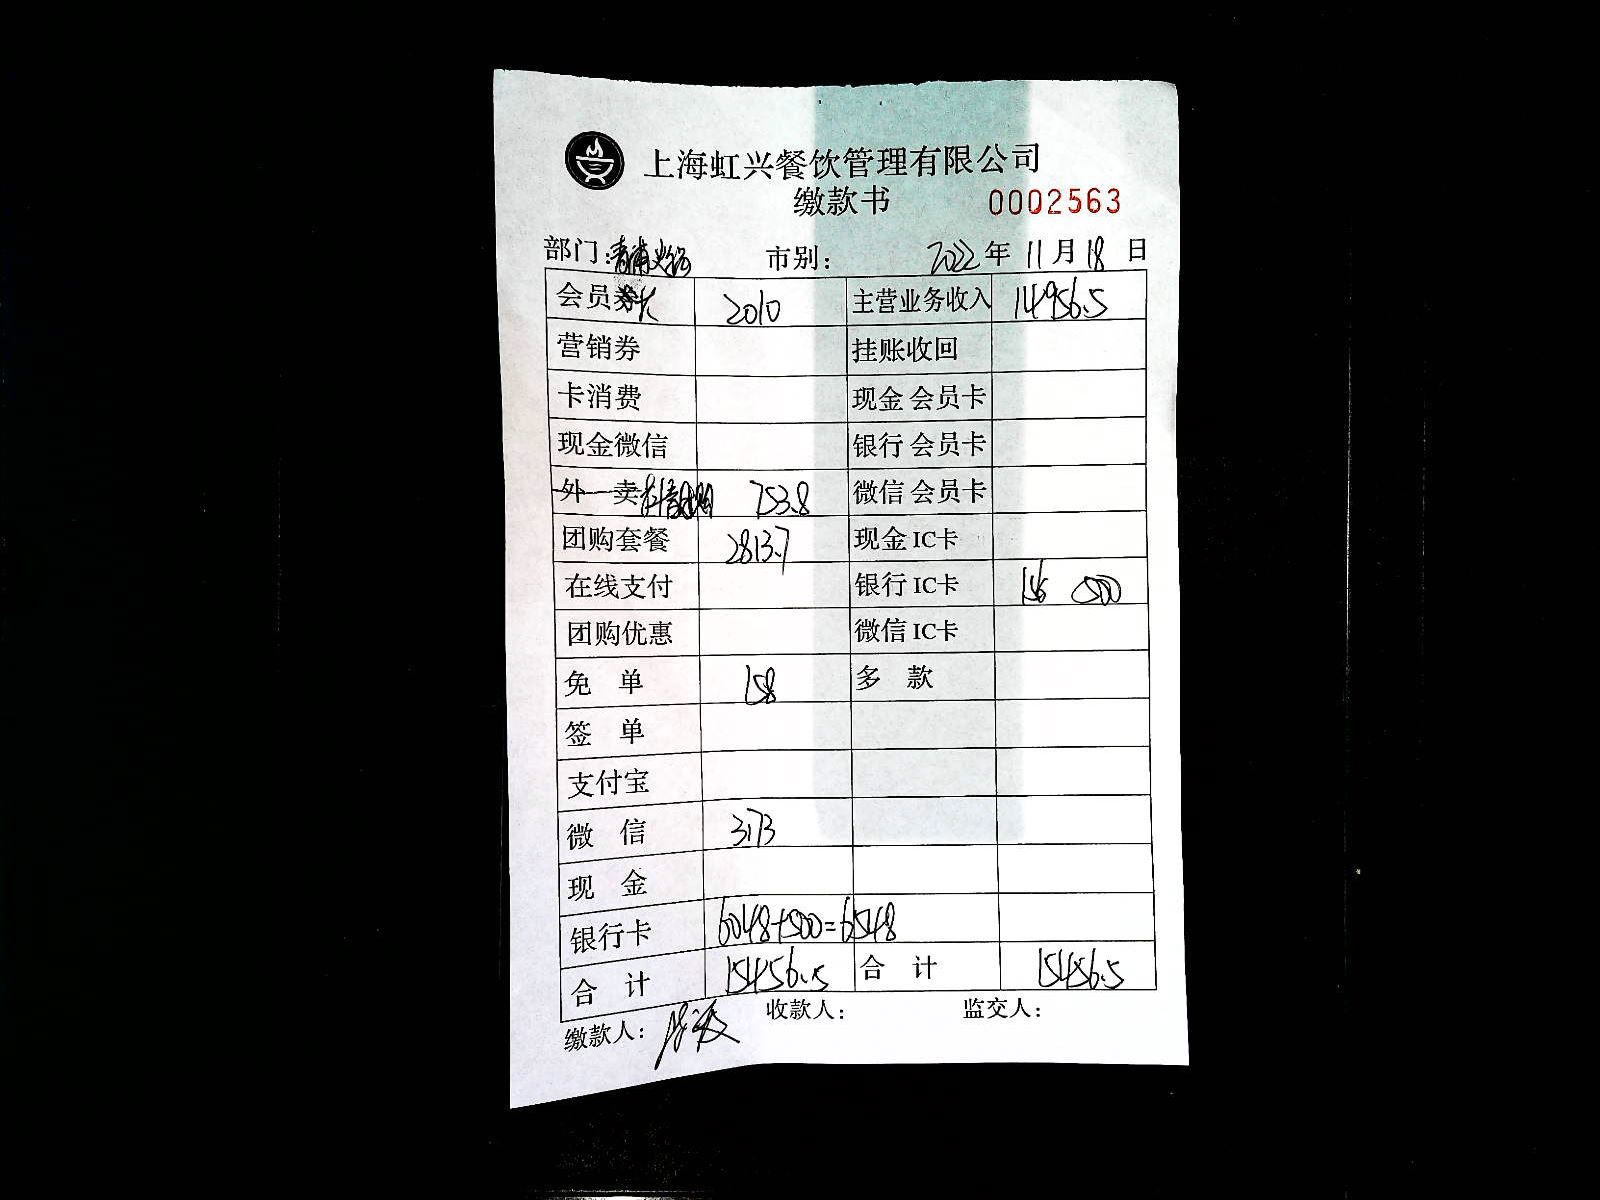 上海虹兴餐饮管理有限公司
缴款书 0002563
部门: 青浦 市别: 2022年11月18日
会员券 2010 主营业务收入 14956.5
营销券 挂账收回
卡消费 现金会员卡
现金微信 银行会员卡
外 卖 抖音团购 753.8 微信会员卡
团购套餐 2813.7 现金IC卡
在线支付 银行IC卡 500
团购优惠 微信IC卡
免 单 158 多 款
签 单
支付宝
微 信 3173
现 金
银行卡 6048+500=6548
合 计 15456.5 合 计 15456.5
缴款人: 收款人: 监交人: